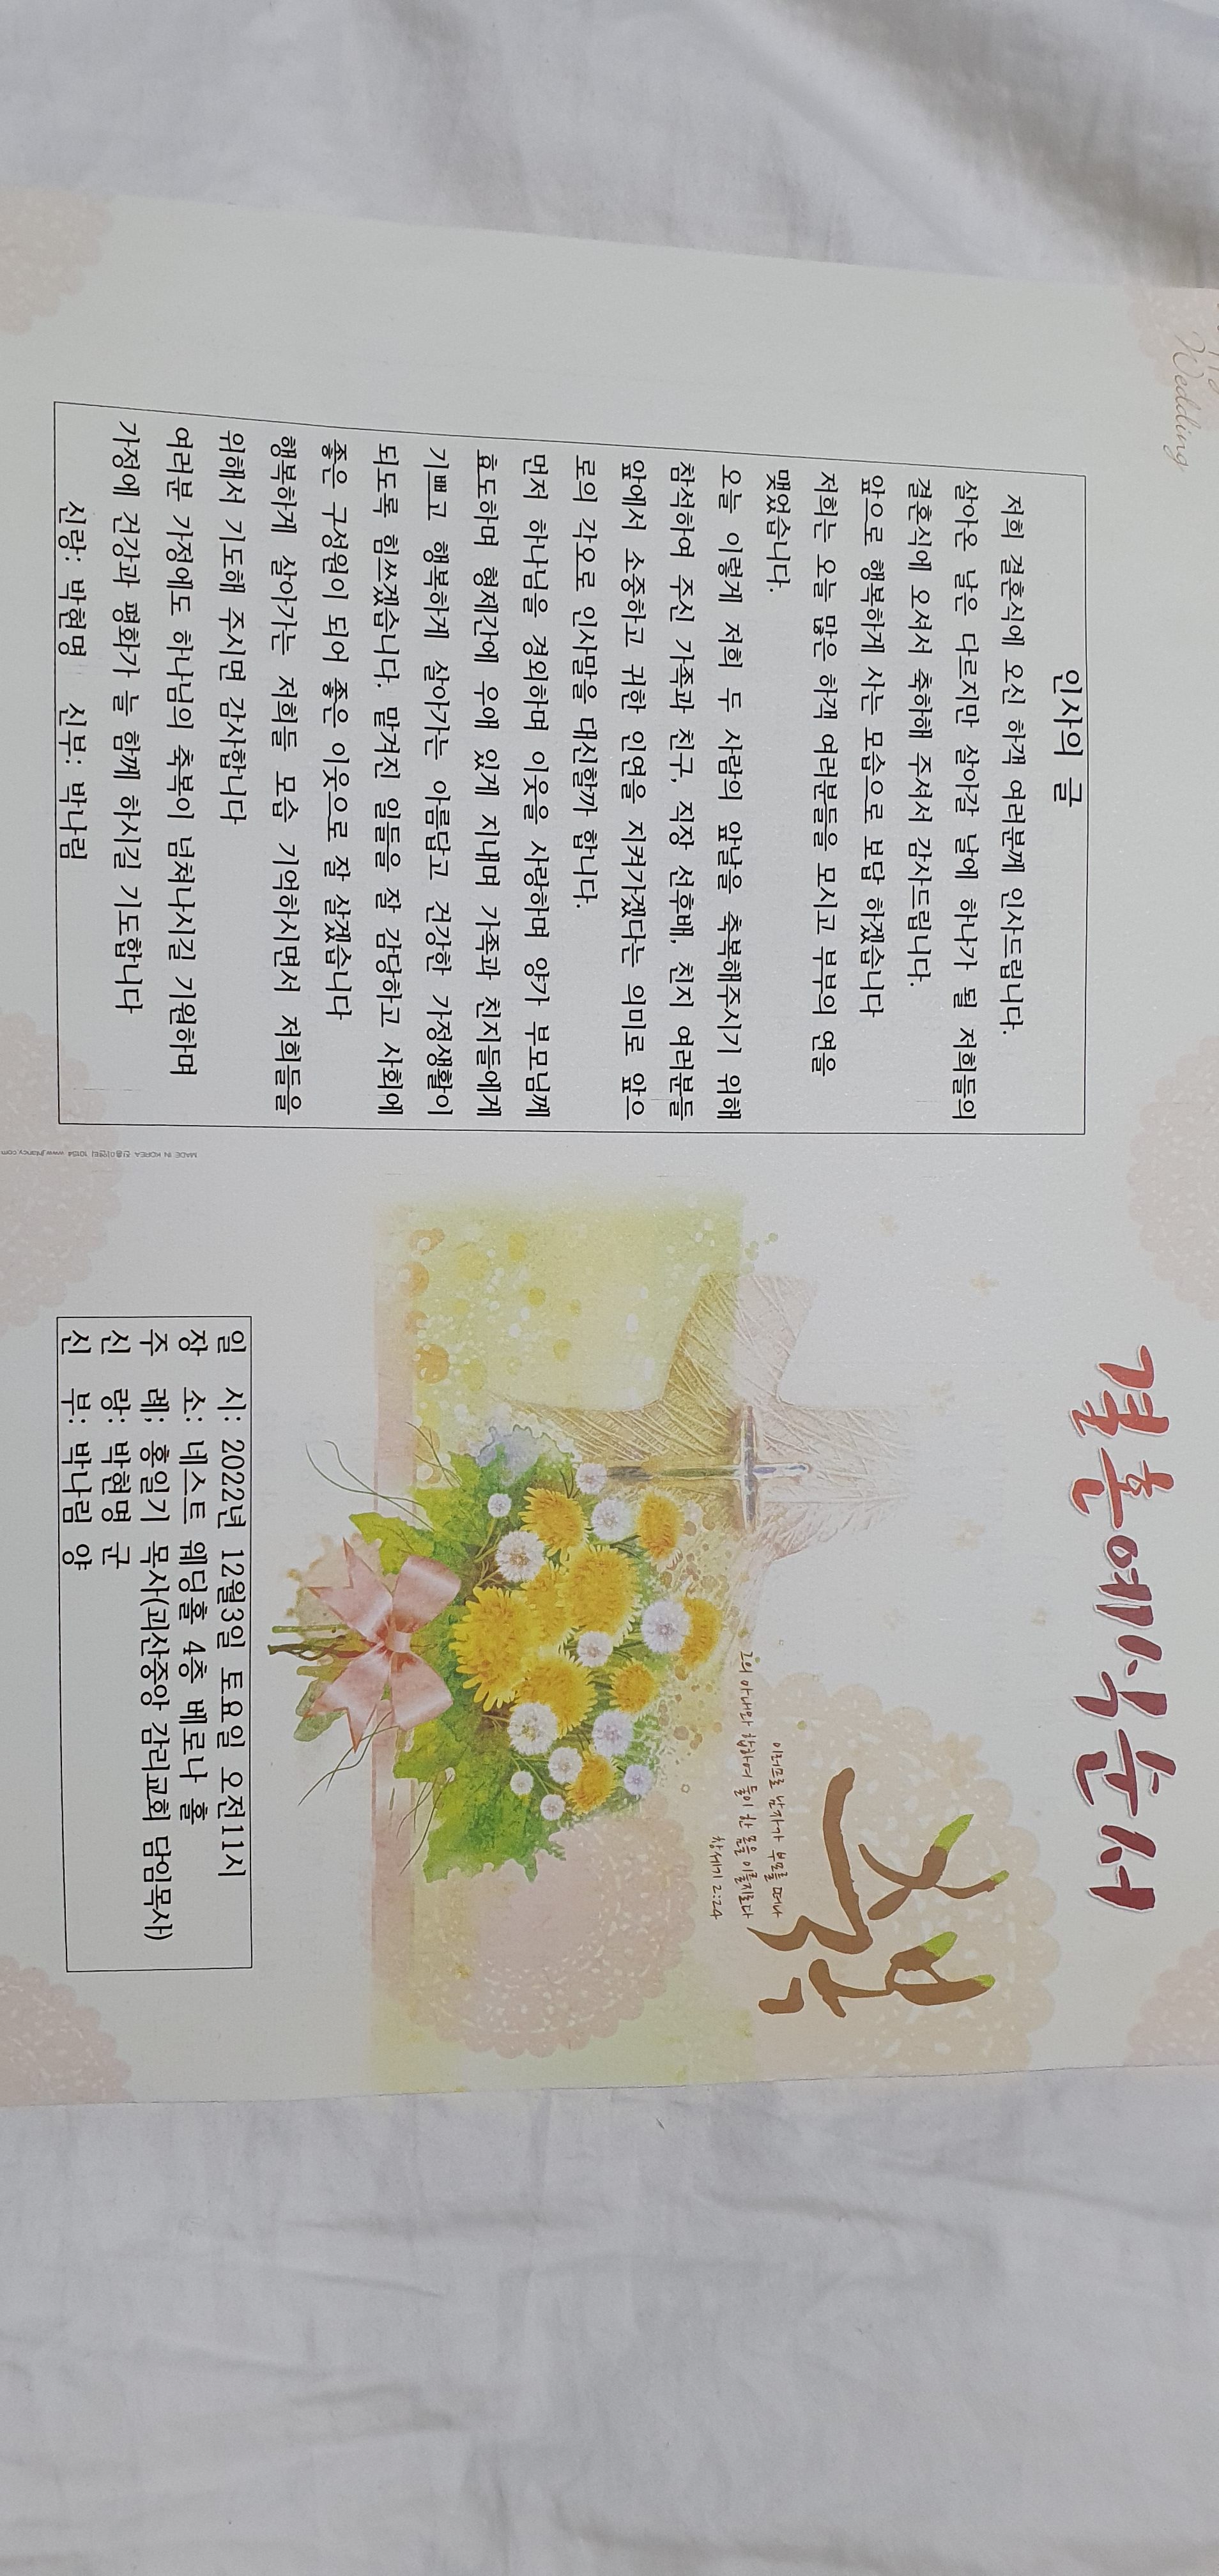 Wedding
인사의 글
저희 결혼식에 오신 하객 여러분께 인사드립니다.
살아온 날은 다르지만 살아갈 날에 하나가 될 저희들의
결혼식에 오셔서 축하해 주셔서 감사드립니다.
앞으로 행복하게 사는 모습으로 보답 하겠습니다
저희는 오늘 많은 하객 여러분들을 모시고 부부의 연을
맺었습니다.
오늘 이렇게 저희 두 사람의 앞날을 축복해주시기 위해
참석하여 주신 가족과 친구, 직장 선후배, 친지 여러분들
앞에서 소중하고 귀한 인연을 지켜가겠다는 의미로 앞으
로의 각오로 인사말을 대신할까 합니다.
먼저 하나님을 경외하며 이웃을 사랑하며 양가 부모님께
효도하며 형제간에 우애 있게 지내며 가족과 친지들에게
기쁘고 행복하게 살아가는 아름답고 건강한 가정생활이
되도록 힘쓰겠습니다. 맡겨진 일들을 잘 감당하고 사회에
좋은 구성원이 되어 좋은 이웃으로 잘 살겠습니다
행복하게 살아가는 저희들 모습 기억하시면서 저희들을
위해서 기도해 주시면 감사합니다
여러분 가정에도 하나님의 축복이 넘쳐나시길 기원하며
가정에 건강과 평화가 늘 함께 하시길 기도합니다
신랑: 박현명 신부: 박나림
MADE IN KOREA 진흥이엔티 10154 www.jhfancy.com
결혼예식순서
축복
이러므로 남자가 부모를 떠나
그의 아내와 합하여 둘이 한 몸을 이룰지로다
창세기 2:24
일 시: 2022년 12월3일 토요일 오전11시
장 소: 네스트 웨딩홀 4층 베로나 홀
주 례; 홍일기 목사(괴산중앙 감리교회 담임목사)
신 랑: 박현명 군
신 부: 박나림 양